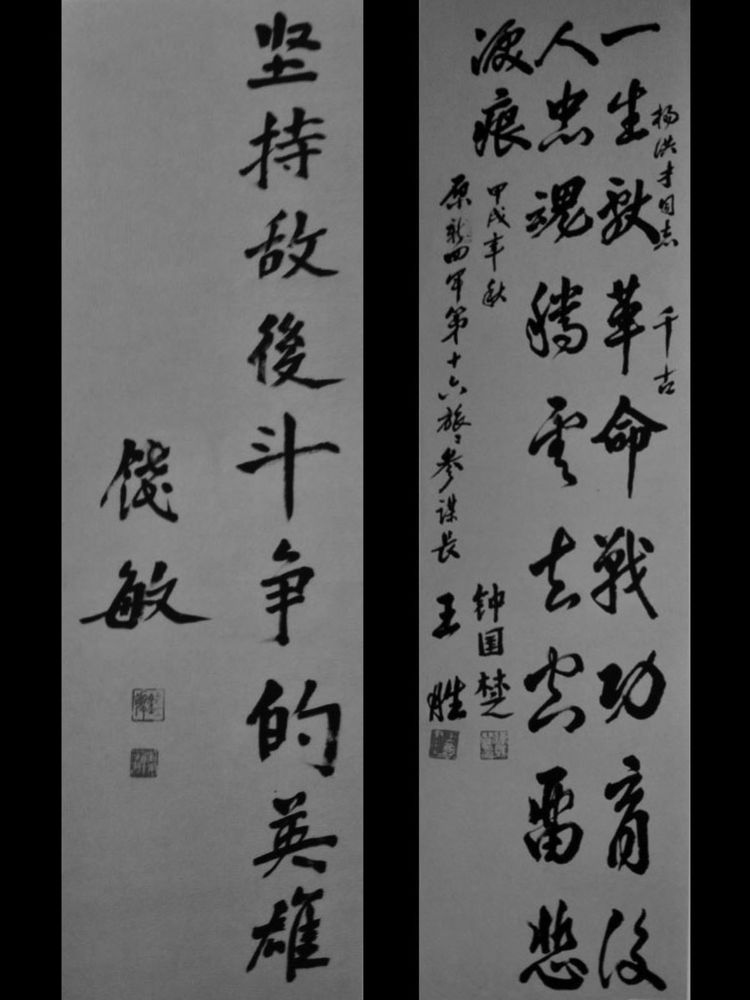 杨洪才同志 千古
一生献革命戰功育後
人忠魂腾雲去空留悲
淚痕
甲戌年秋
原新四军第十六旅、参谋长
钟国楚
王胜
坚持敌後斗争的英雄
錢敏